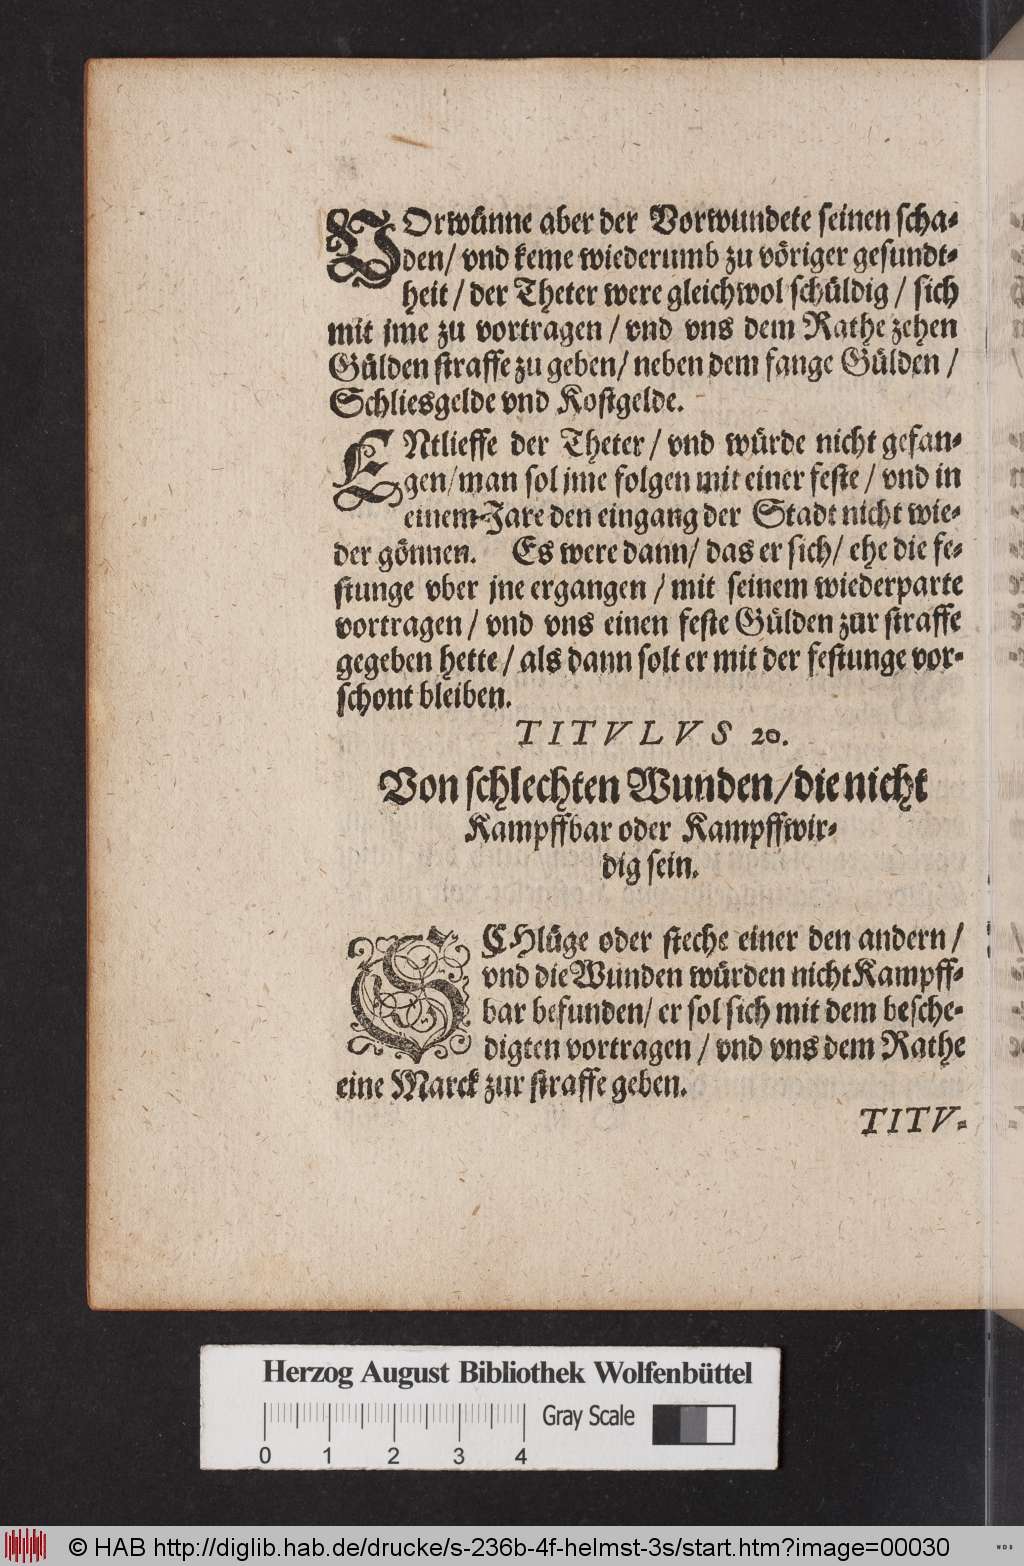 VOrwünne aber der Vorwundete seinen scha-
den/ vnd keme wiederumb zu vöriger gesundt-
heit / der Theter were gleichwol schüldig / sich
mit jme zu vortragen / vnd vns dem Rathe zehen
Gülden straffe zu geben/ neben dem fange Gülden /
Schliesgelde vnd Kostgelde.
ENtlieffe der Theter / vnd würde nicht gefan-
gen/man sol jme folgen mit einer feste / vnd in
einem Jare den eingang der Stadt nicht wie-
der gönnen. Es were dann/ das er sich/ ehe die fe-
stunge vber jne ergangen / mit seinem wiederparte
vortragen / vnd vns einen feste Gülden zur straffe
gegeben hette / als dann solt er mit der festunge vor-
schont bleiben.
TITVLVS 20.
Von schlechten Wunden/die nicht
Kampffbar oder Kampffwir-
dig sein.
SCHlüge oder steche einer den andern /
vnd die Wunden würden nicht Kampff-
bar befunden/ er sol sich mit dem besche-
digten vortragen / vnd vns dem Rathe
eine Marck zur straffe geben.
TITV-
Herzog August Bibliothek Wolfenbüttel
Gray Scale
0 1 2 3 4
© HAB http://diglib.hab.de/drucke/s-236b-4f-helmst-3s/start.htm?image=00030